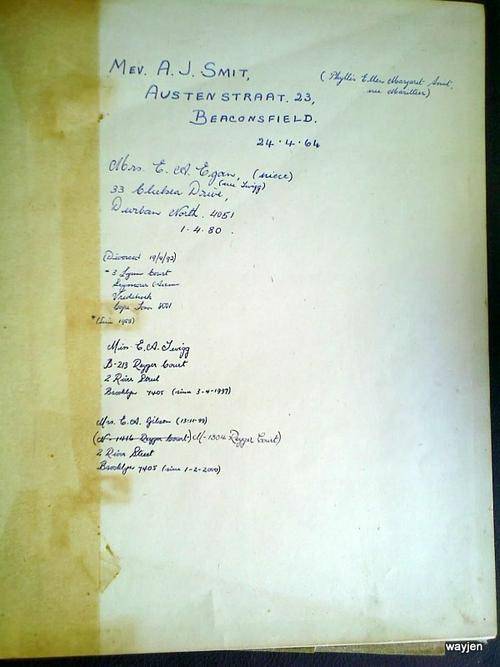 MEV. A. J. SMIT,
(Phyllis Ellen Margaret Smit,
née Marillier)
AUSTENSTRAAT. 23,
BEACONSFIELD.
24.4.64
Mrs. E. A. Egan, (niece)
(née Twigg)
33 Chelsea Drive,
Durban North. 4051
1.4.80.
(Divorced 19/4/92)
* 3 Lynn Court
Seymour
Vredehoek
Cape Town 8001
*(Since 1988)
Miss E. A. Twigg
B-213 Rygger Court
2 River Street
Brooklyn 7405 (since 3-4-1997)
Mrs. E. A. Gibson (13-11-99)
(N-1416 Rygger Court) N-1304 Rygger Court)
2 River Street
Brooklyn 7405 (since 1-2-2000)
wayjen